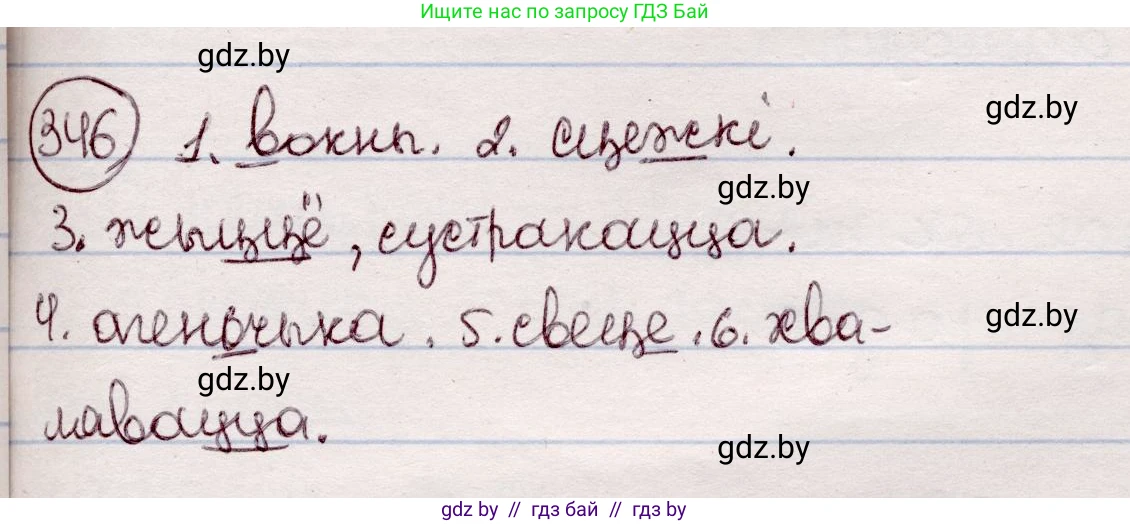 Ищите нас по запросу ГДЗ Бай
gdz.by
gdz.by
346 1. вокны. 2. сцежкі.
gdz.by
3. жыццё, сустракацца.
4. агеньчыка. 5. свеце. 6. хва-
gdz.by
gdz.by
лявацца.
gdz.by
gdz by // гдз бай // гдз by